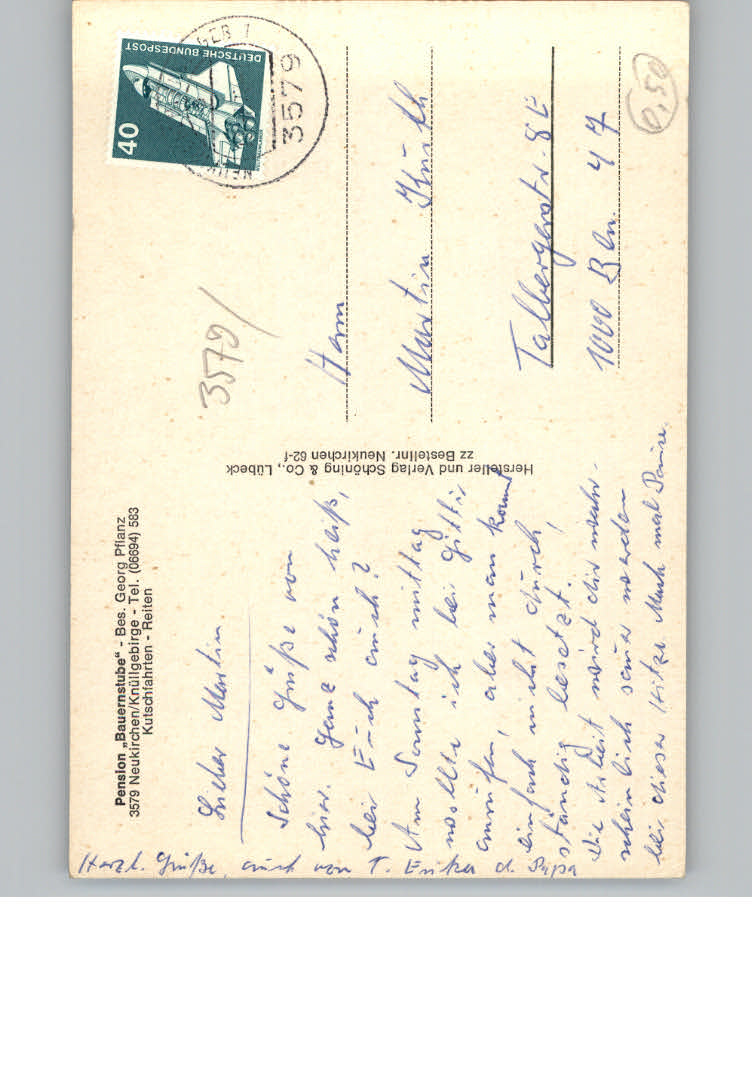 Pension „Bauernstube“ - Bes. Georg Pflanz
3579 Neukirchen/Knüllgebirge - Tel. (06694) 583
Kutschfahrten - Reiten
Lieber Martin.
Schöne Grüße von
hier. Ganz schön heiß,
bei Euch auch?
Am Sonntag mittag
wollte ich bei Gitti
anrufen, aber man kommt
einfach nicht durch,
ständig besetzt.
Die Arbeit wird dir wahr-
scheinlich sauer werden
bei dieser Hitze. Mach mal Pause.
Herzl. Grüße, auch von T. Erika d. Papa
Hersteller und Verlag Schöning & Co., Lübeck
zz Bestellnr. Neukirchen 62-f
DEUTSCHE BUNDESPOST
40
3579
3579/
0,50
Herrn
Martin
Talbergerstr. 8E
1000 Bln. 47